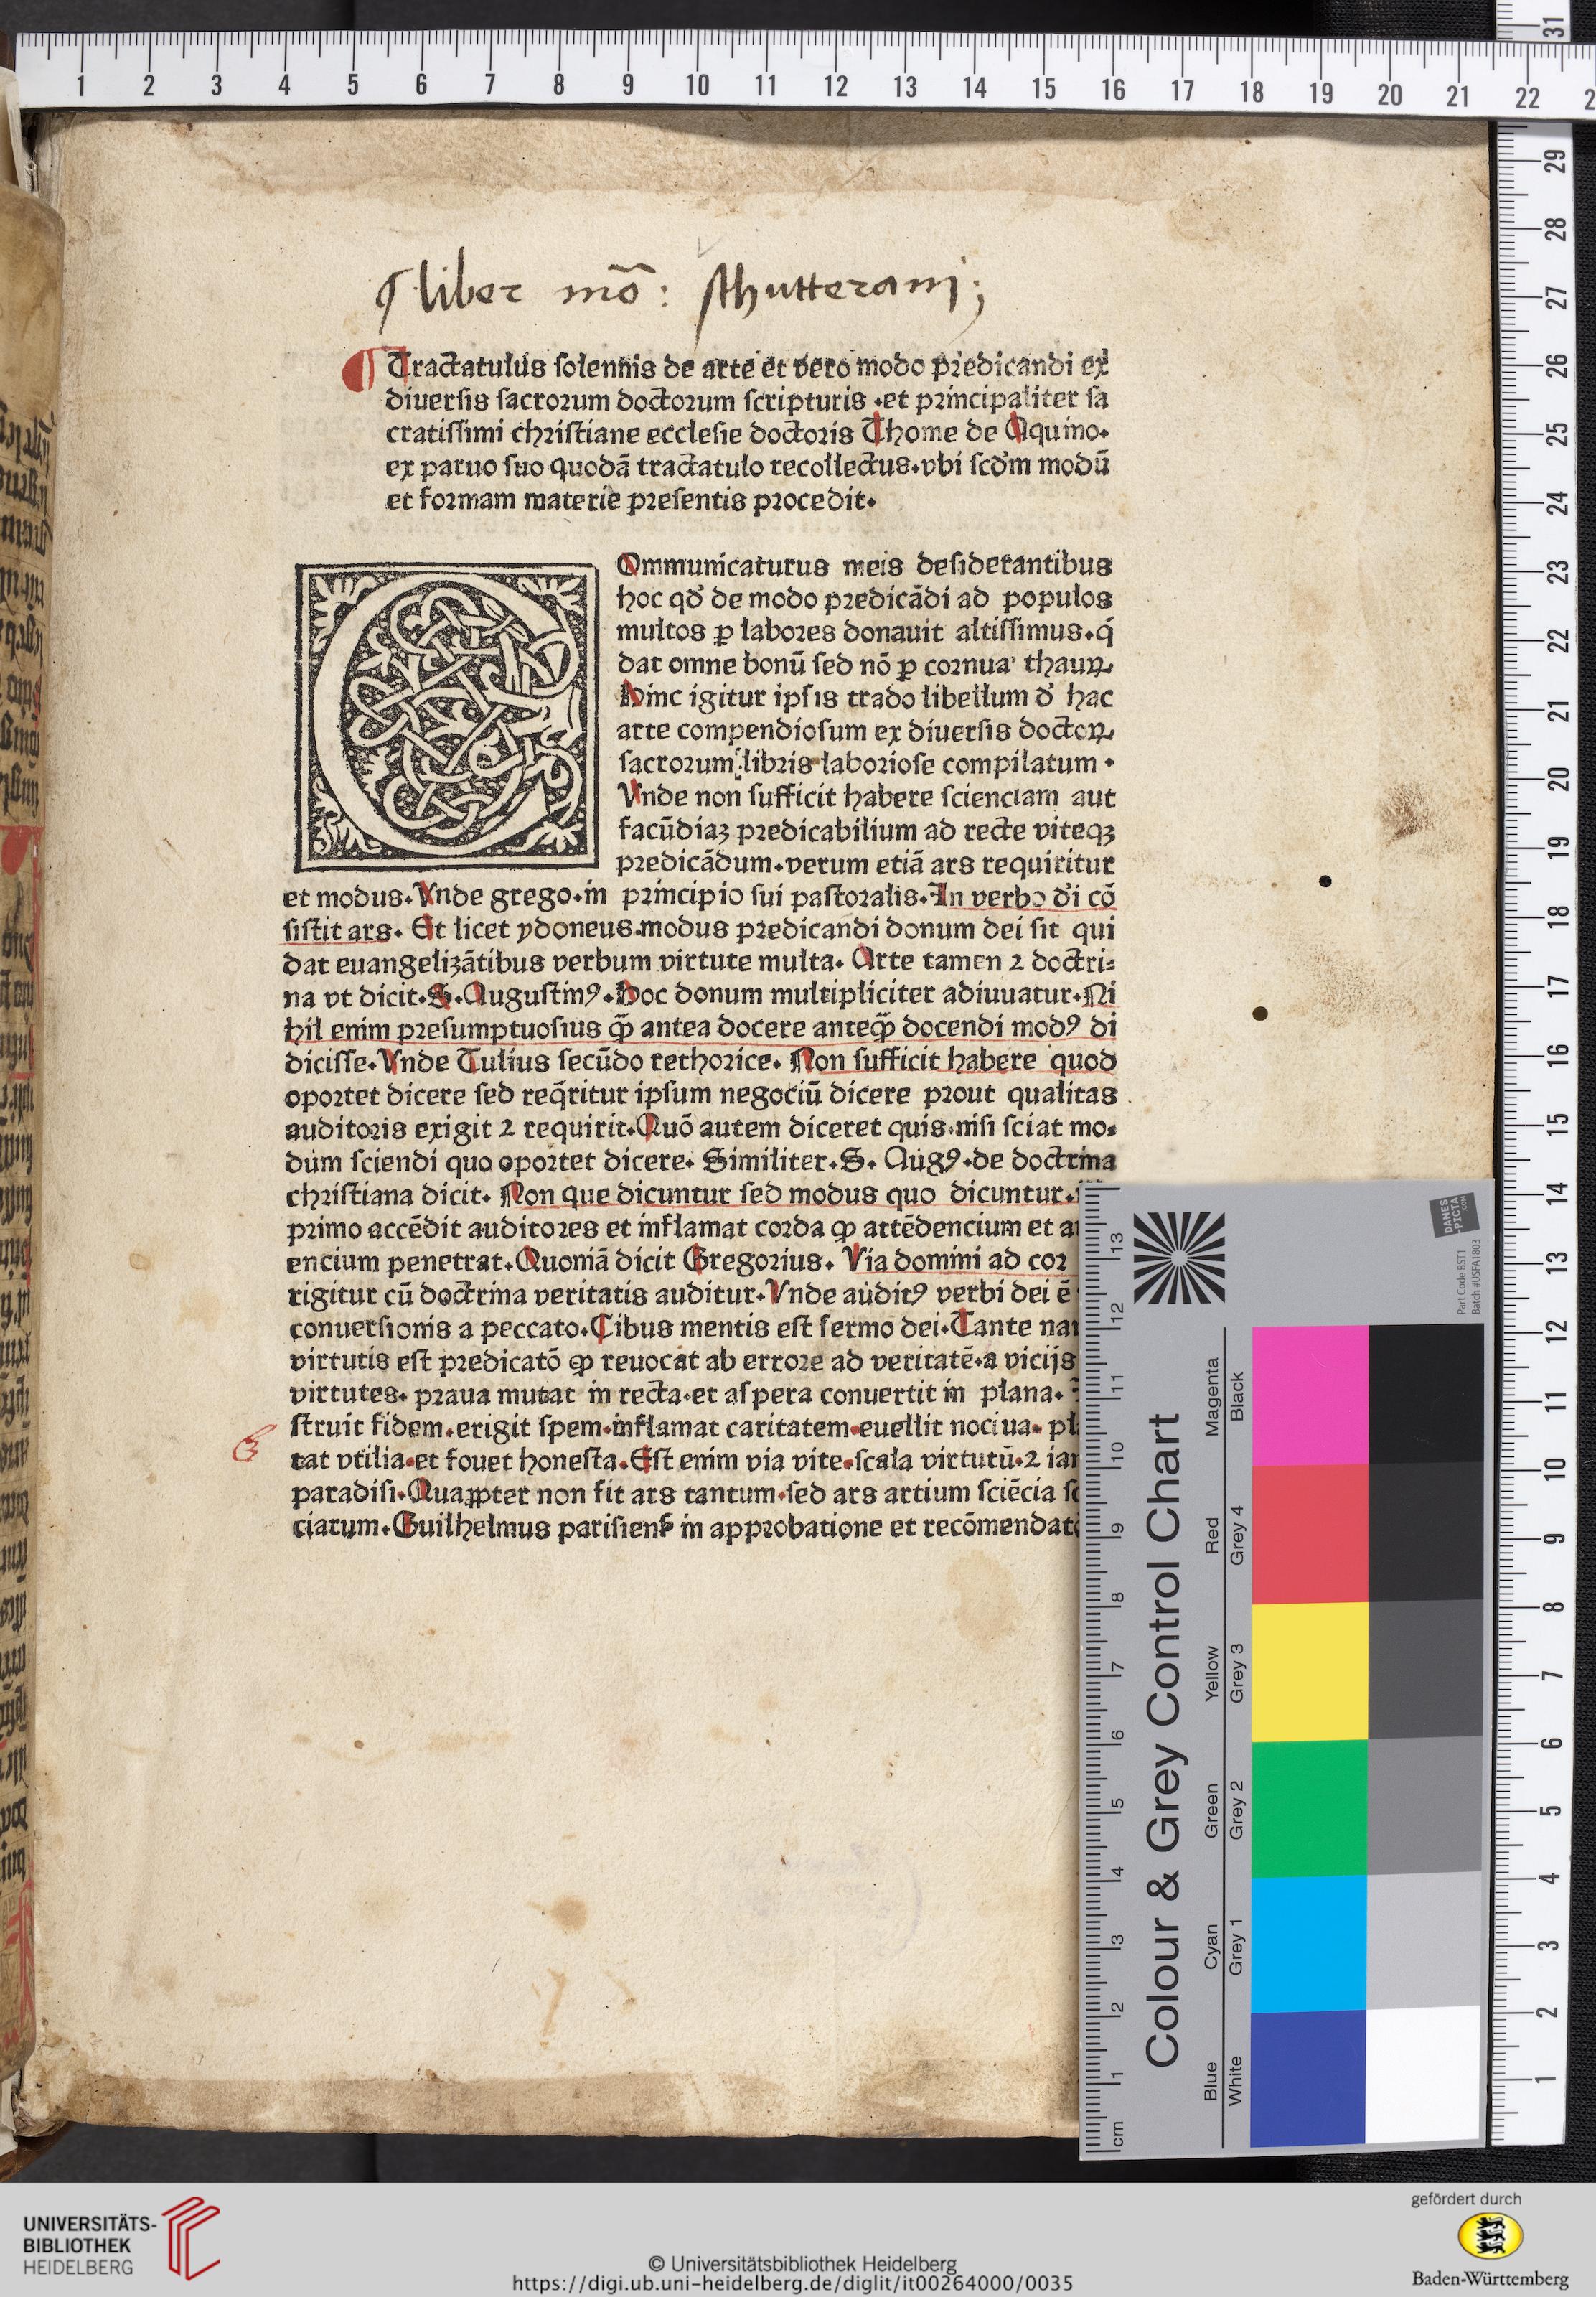 ¶ liber mo᷒: schutterani;
¶ Tractatulus ſolennis de arte et vero modo predicandi ex
diuerſis ſacrorum doctorum ſcripturis .et principaliter ſa
cratiſſimi chriſtiane eccleſie doctoris Thome de Aquino.
ex paruo ſuo quodā tractatulo recollectus.vbi ſcd'm modū
et formam materie preſentis procedit.
COmmunicaturus meis deſiderantibus
hoc qd' de modo predicādi ad populos
multos ꝑ labores donauit altiſſimus.q̇
dat omne bonū ſed nō ꝑ cornua thauꝝ
Hinc igitur ipſis trado libellum d' hac
arte compendioſum ex diuerſis doctoꝝ
ſacrorum libris laborioſe compilatum .
Vnde non ſufficit habere ſcienciam aut
facūdiaꝫ predicabilium ad recte viteqꝫ
predicādum.verum etiā ars requiritur
et modus.Vnde grego.in principio ſui paſtoralis.In verbo d'i cō
ſiſtit ars. Et licet ydoneus.modus predicandi donum dei ſit qui
dat euangelizātibus verbum virtute multa. Arte tamen ⁊ doctri⸗
na vt dicit.S.Auguſtinꝰ.Hoc donum multipliciter adiuuatur.Ni
hil enim preſumptuoſius qꝫ̄ antea docere anteqꝫ̄ docendi modꝰ di
diciſſe.Vnde Tulius ſecūdo rethorice. Non ſufficit habere quod
oportet dicere ſed req̄ritur ipſum negociū dicere prout qualitas
auditoris exigit ⁊ requirit.Quō autem diceret quis.niſi ſciat mo⸗
dum ſciendi quo oportet dicere. Similiter.S. Augꝰ.de doctrina
chriſtiana dicit. Non que dicuntur ſed modus quo dicuntur.
primo accēdit auditores et inflamat corda ꝙ attēdencium et
encium penetrat.Quoniā dicit Gregorius. Via domini ad cor
rigitur cū doctrina veritatis auditur.Vnde auditꝰ verbi dei ē
conuerſionis a peccato.Cibus mentis eſt ſermo dei.Tante
virtutis eſt predicatō ꝙ reuocat ab errore ad veritatē.a vicijs
virtutes. praua mutat in recta.et aſpera conuertit in plana.
ſtruit fidem.erigit ſpem.inflamat caritatem.euellit nociua.
tat vtilia.et fouet honeſta.Eſt enim via vite.ſcala virtutū.⁊
paradiſi.Quaꝓpter non fit ars tantum.ſed ars artium ſciēcia
ciarum.Guilhelmus pariſienſ in approbatione et
1 2 3 4 5 6 7 8 9 10 11 12 13 14 15 16 17 18 19 20 21 22
31 29 28 27 26 25 24 23 22 21 20 19 18 17 16 15 14 13 12 11 10 9 8 7 6 5 4 3 2 1
Colour & Grey Control Chart
cm 1 2 3 4 5 6 7 8 9 10 11 12 13
Blue Cyan Green Yellow Red Magenta
White Grey 1 Grey 2 Grey 3 Grey 4 Black
DANES
-PICTA
.COM
Part Code BST1
Batch #USFA1803
UNIVERSITÄTS-
BIBLIOTHEK
HEIDELBERG
© Universitätsbibliothek Heidelberg
https://digi.ub.uni-heidelberg.de/diglit/it00264000/0035
gefördert durch
Baden-Württemberg